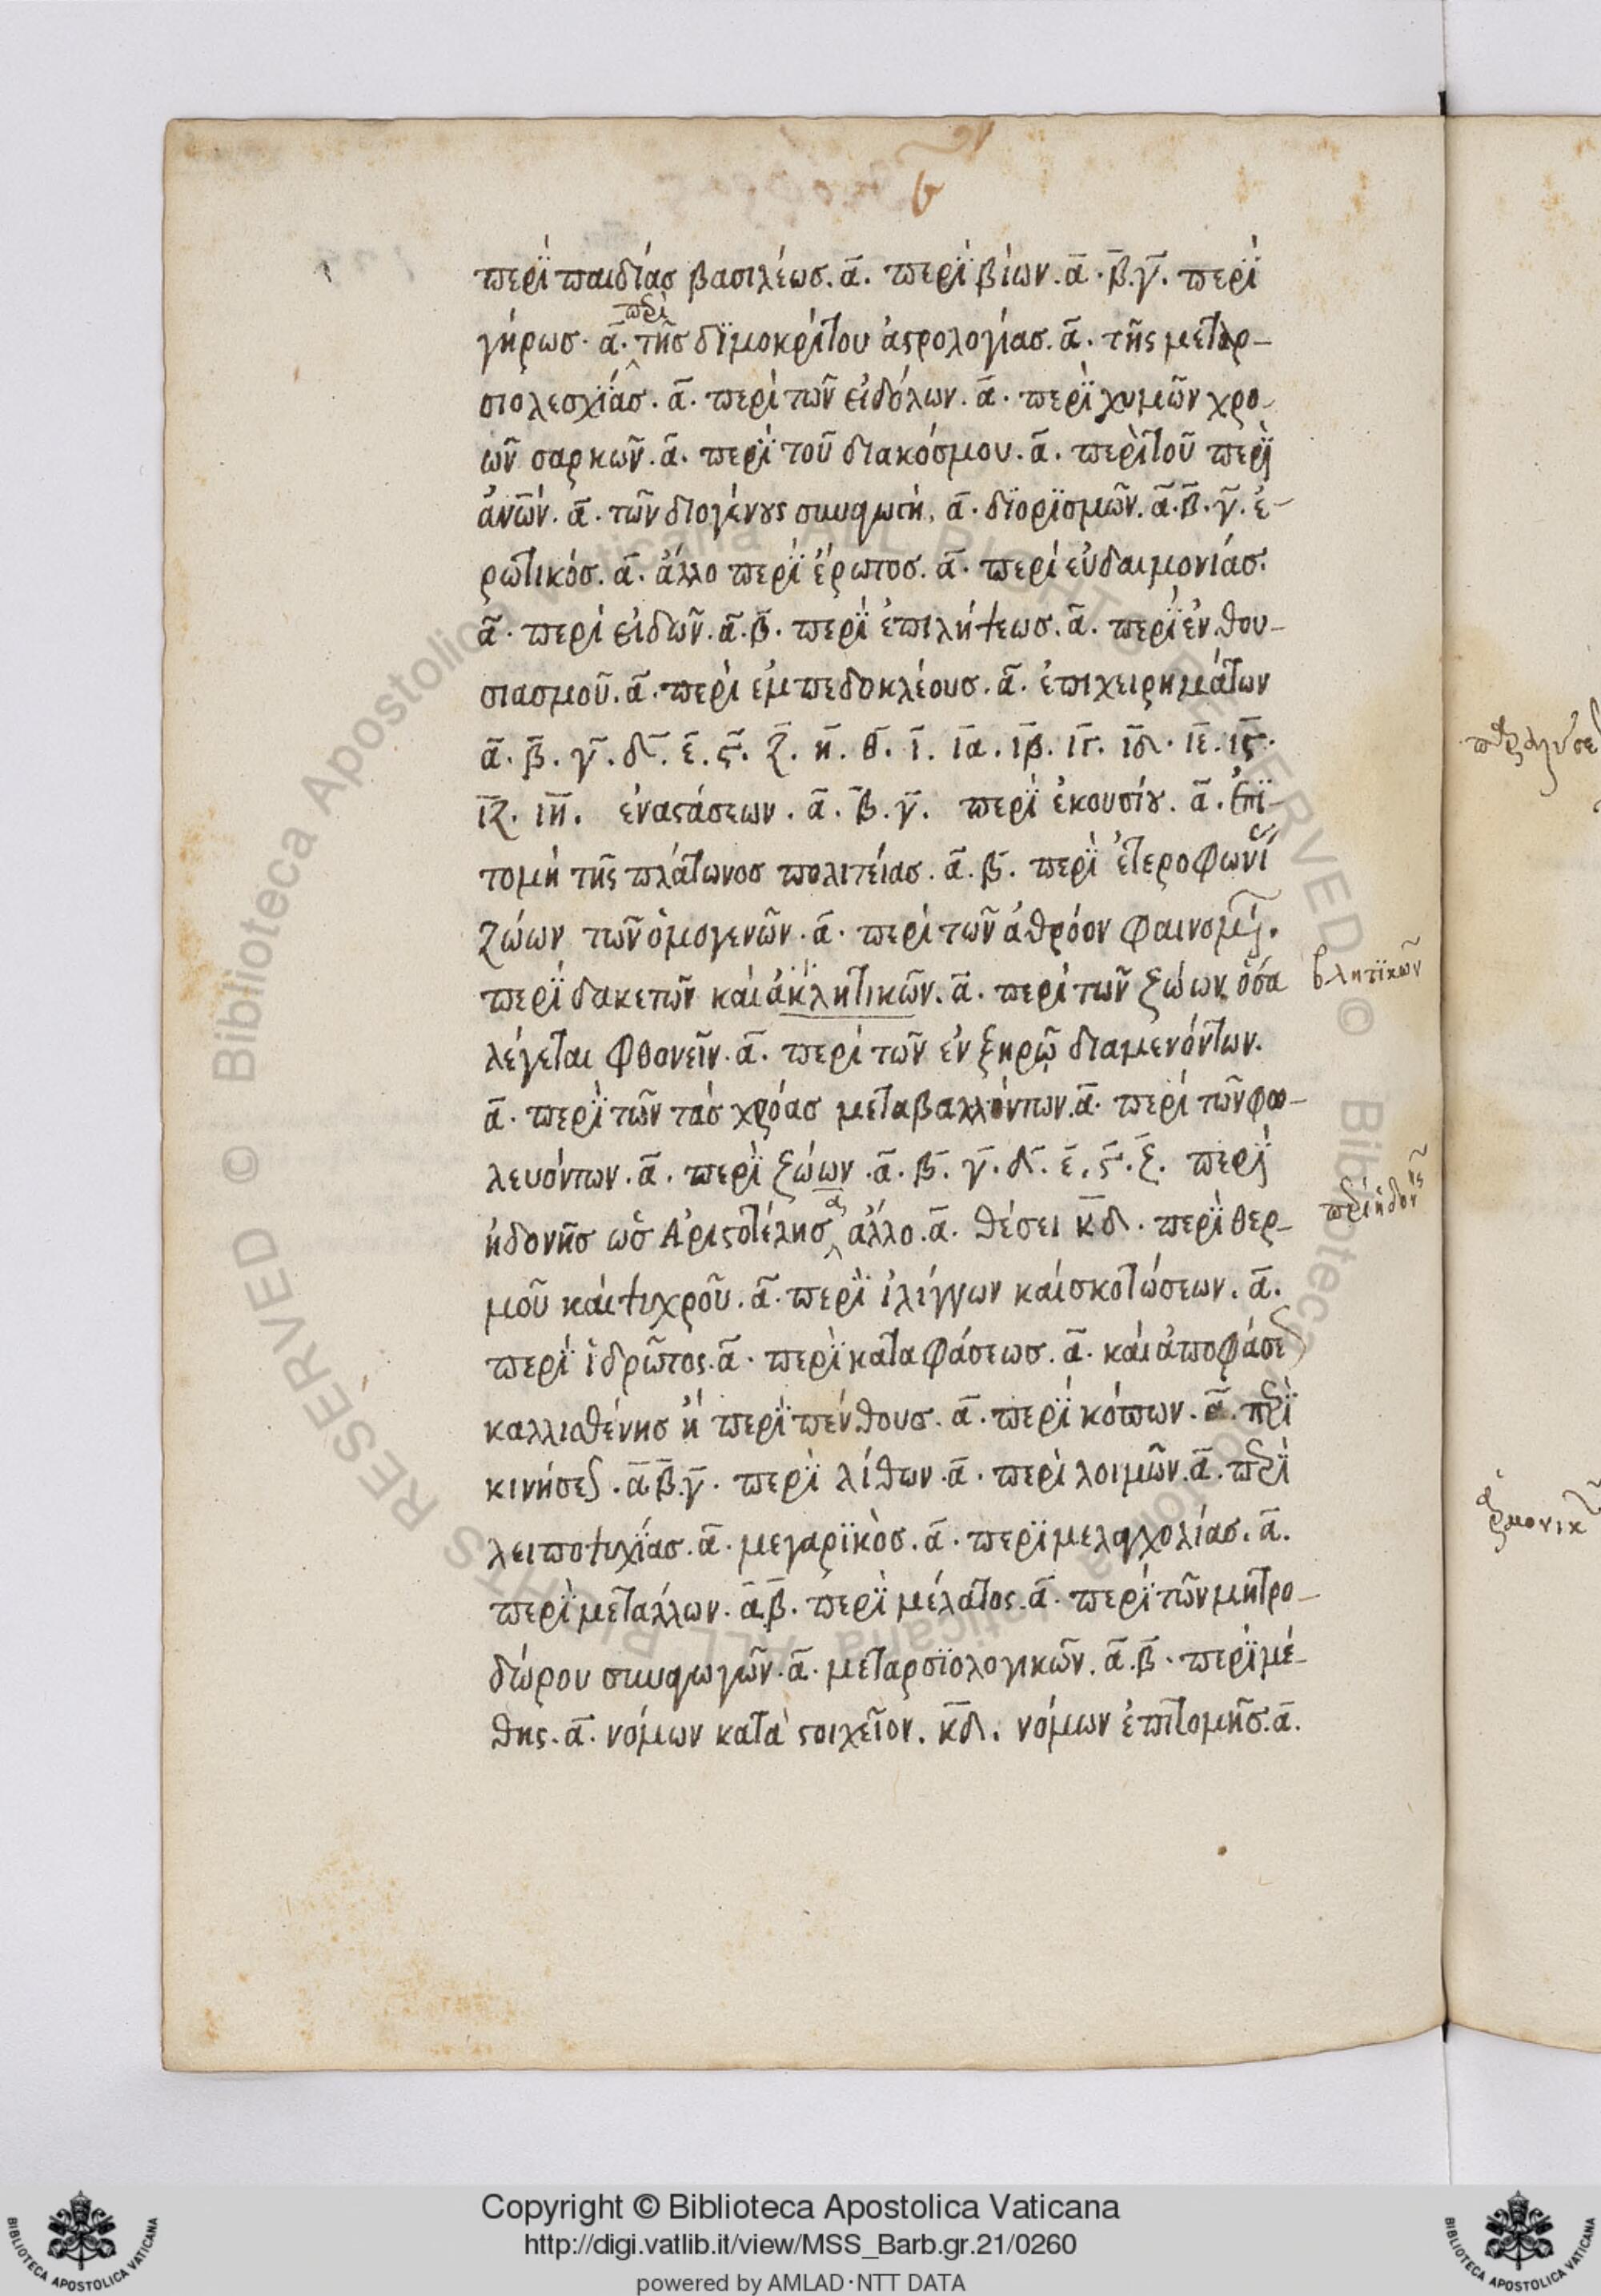 περὶ παιδίας βασιλέως. α̅. περὶ βίων. α̅. β̅. γ̅. περὶ
γήρως. α̅. περὶ τῆς δϊμοκρίτου ἀστρολογίας. α̅. τῆς μεταρ-
σιολεσχίας. α̅. περὶ τῶν εἰδόλων. α̅. περὶ χυμῶν χρο-
ῶν σαρκῶν. α̅. περὶ τοῦ διακόσμου. α̅. περὶ τοῦ περὶ
ἀν̅ων. α̅. τῶν διογένους συναγωγὴ. α̅. διορισμῶν. α̅. β̅. γ̅. ἐ-
ρωτικός. α̅. ἄλλο περὶ ἔρωτος. α̅. περὶ εὐδαιμονίας.
α̅. περὶ εἰδῶν. α̅. β̅. περὶ ἐπιλήψεως. α̅. περὶ ἐνθου-
σιασμοῦ. α̅. περὶ ἐμπεδοκλέους. α̅. ἐπιχειρημάτων
α̅. β̅. γ̅. δ̅. ε̅. ς̅. ζ̅. η̅. θ̅. ι̅. ι̅α. ι̅β. ι̅γ. ι̅δ. ι̅ε. ι̅ς.
ι̅ζ. ι̅η. ἐνστάσεων. α̅. β̅. γ̅. περὶ ἑκουσίου. α̅. ἐπι-
τομὴ τῆς πλάτωνος πολιτείας. α̅. β̅. περὶ ἑτεροφωνί
ζώων τῶν ὁμογενῶν. α̅. περὶ τῶν ἀθρόον φαινομέ.
περὶ δακετῶν καὶ ἀκλητικῶν. α̅. περὶ τῶν ζώων, ὅσα
βλητϊκῶν
λέγεται φθονεῖν. α̅. περὶ τῶν ἐν ξηρῷ διαμενόντων.
α̅. περὶ τῶν τὰς χρόας μεταβαλλόντων. α̅. περὶ τῶν φω-
λευόντων. α̅. περὶ ζώων. α̅. β̅. γ̅. δ̅. ε̅. ς̅. ζ̅. περὶ
ἡδονῆς ὡς Ἀριστοτέλης α̅ ἄλλο. α̅. θέσει κ̅δ. περὶ θερ-
περὶ ἡδονῆς
μοῦ καὶ ψυχροῦ. α̅. περὶ ἰλίγγων καὶ σκοτώσεων. α̅.
περὶ ἱδρῶτος. α̅. περὶ καταφάσεως. α̅. καὶ ἀποφάσε
καλλισθένης ἢ περὶ πένθους. α̅. περὶ κόπων. α̅. περὶ
κινήσε. α̅. β̅. γ̅. περὶ λίθων. α̅. περὶ λοιμῶν. α̅. περὶ
λειποψυχίας. α̅. μεγαρϊκὸς. α̅. περὶ μελαγχολίας. α̅.
περὶ μετάλλων. α̅. β̅. περὶ μέλατος. α̅. περὶ τῶν μητρο-
δώρου συναγωγῶν. α̅. μεταρσϊολογικῶν. α̅. β̅. περὶ μέ-
θης. α̅. νόμων κατὰ στοιχεῖον. κ̅δ. νόμων ἐπιτομῆς. α̅.
Copyright © Biblioteca Apostolica Vaticana
http://digi.vatlib.it/view/MSS_Barb.gr.21/0260
powered by AMLAD·NTT DATA